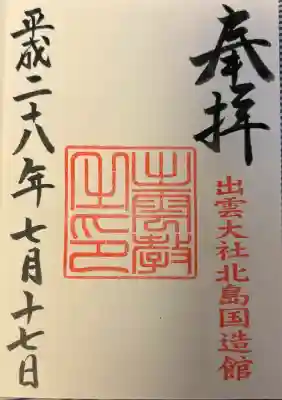 奉拝
出雲大社北島国造館
出雲教之印
平成二十八年七月十七日